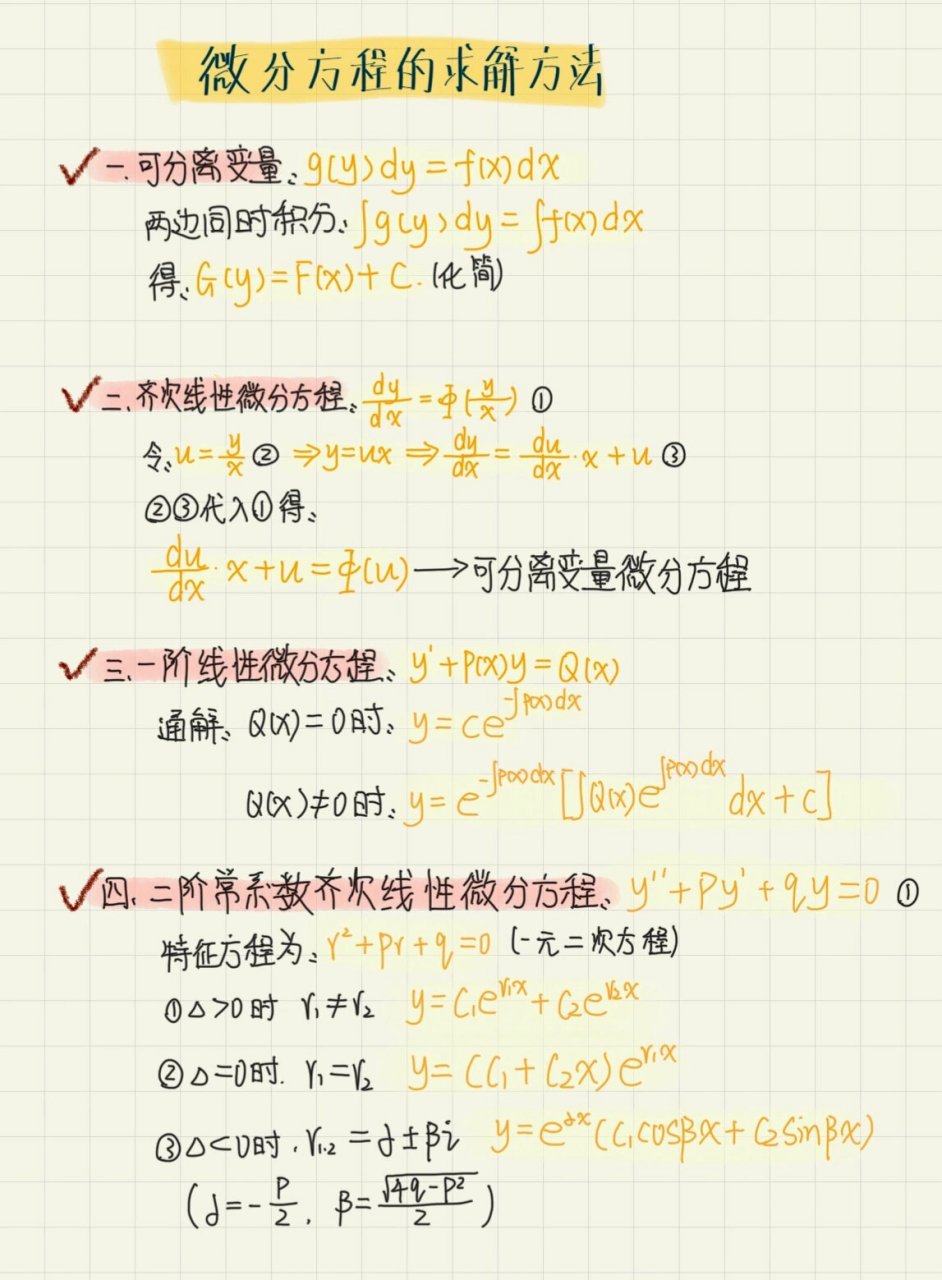 微分方程的求解方法
一.可分离变量、g(y)dy=f(x)dx
两边同时积分、∫g(y)dy=∫f(x)dx
得、G(y)=F(x)+C.(化简)
二、齐次线性微分方程、dy/dx=Φ(y/x) ①
令、u=y/x ② ⇒y=ux ⇒dy/dx=du/dx·x+u ③
②③代入①得、
du/dx·x+u=Φ(u)→可分离变量微分方程
三.一阶线性微分方程、y'+P(x)y=Q(x)
通解、Q(x)=0时、y=ce^{-∫P(x)dx}
Q(x)≠0时、y=e^{-∫P(x)dx}[∫Q(x)e^{∫P(x)dx}dx+C]
四.二阶常系数齐次线性微分方程、y''+Py'+qy=0 ①
特征方程为、r²+pr+q=0 (一元二次方程)
①Δ>0时 r₁≠r₂ y=C₁e^{r₁x}+C₂e^{r₂x}
②Δ=0时. r₁=r₂ y=(C₁+C₂x)e^{r₁x}
③Δ<0时.r₁.₂=α±βi y=e^{αx}(C₁cosβx+C₂sinβx)
(α=-P/2, β=√(4q-P²)/2)